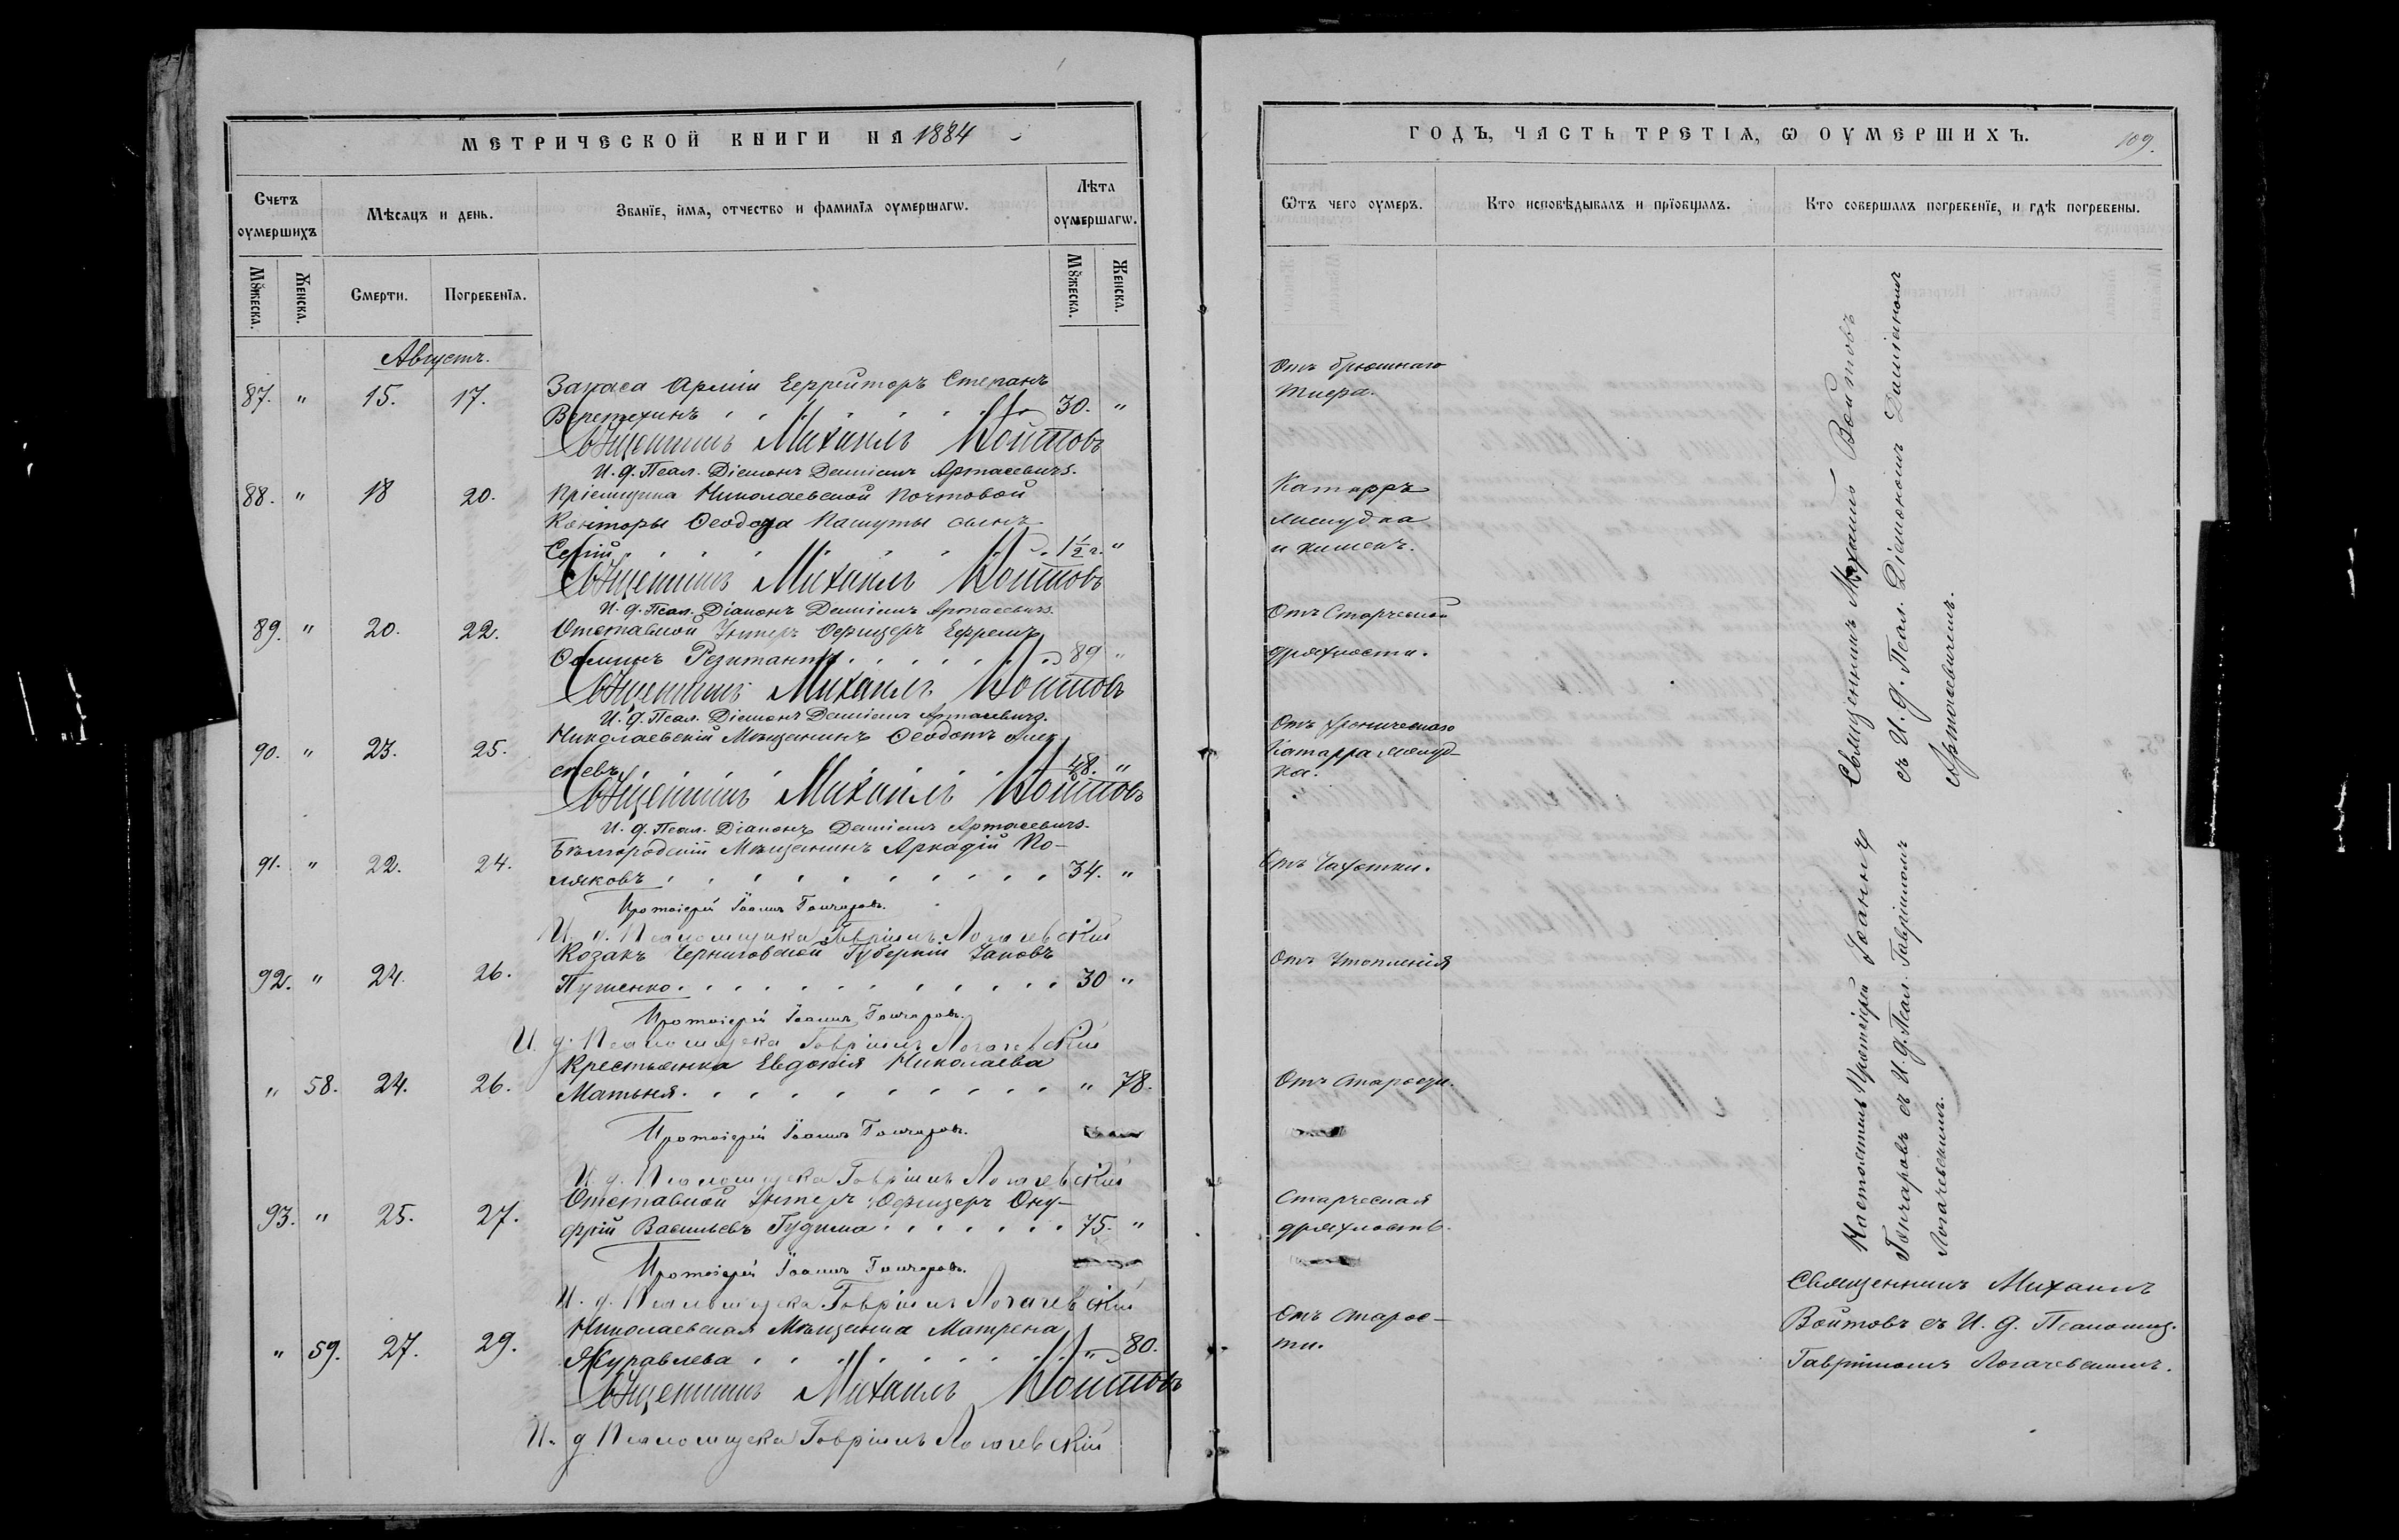 МЕТРИЧЕСКОЙ КНИГИ НА 1884
Счетъ оумершихъ
Мѣсяцъ и день.
Званїе, имя, отчество и фамилїа оумершагѡ.
Лѣта оумершагѡ.
Мꙋжеска.
Женска.
Смерти.
Погребенїя.
Мꙋжеска.
Женска.
Августъ.
87. " 15. 17. Запаса Арміи Ефрейторъ Степанъ
Веретехинъ 30. "
Священникъ Михаилъ Войтовъ
И. д. Псал. Діаконъ Даміанъ Артасевичъ.
88. " 18 20. Пріемщика Николаевской Почтовой
Конторы Ѳеодора Пашуты сынъ
Сергій 1½ г. "
Священникъ Михаилъ Войтовъ
И. д. Псал. Діаконъ Даміанъ Артасевичъ.
89. " 20. 22. Отставной Унтеръ Офицеръ Ефремъ
Осминъ 89 "
Священникъ Михаилъ Войтовъ
И. д. Псал. Діаконъ Даміанъ Артасевичъ.
90. " 23. 25. Николаевскій Мѣщанинъ Ѳеодотъ Алек-
сѣевъ 48. "
Священникъ Михаилъ Войтовъ
И. д. Псал. Діаконъ Даміанъ Артасевичъ.
91. " 22. 24. Бѣлгородскій Мѣщанинъ Аркадій По-
ляковъ 34. "
Протоіерей Іоаннъ Гончаровъ.
И. д. Псаломщика Гавріилъ Логачевскій
92. " 24. 26. Козакъ Черниговской Губерніи Іаковъ
30 "
Протоіерей Іоаннъ Гончаровъ.
И. д. Псаломщика Гавріилъ Логачевскій
" 58. 24. 26. Крестьянка Евдокія Николаева
" 78.
Протоіерей Іоаннъ Гончаровъ.
И. д. Псаломщика Гавріилъ Логачевскій
93. " 25. 27. Отставной Унтеръ Офицеръ Ону-
фрій Васильевъ Гудима 75. "
Протоіерей Іоаннъ Гончаровъ.
И. д. Псаломщика Гавріилъ Логачевскій
" 59. 27. 29. Николаевская Мѣщанка Матрена
Журавлева " 80.
Священникъ Михаилъ Войтовъ
И. д Псаломщика Гавріилъ Логачевскій
ГОДЪ, ЧАСТЬ ТРЕТІЯ, Ѡ ОУМЕРШИХЪ.
109.
Ѿтъ чего оумеръ.
Кто исповѣдывалъ и прїобщалъ.
Кто совершалъ погребенїе, и гдѣ погребены.
Отъ брюшнаго
тифа.
Катарръ
желудка
и кишекъ.
Отъ Старческой
дряхлости.
Отъ хроническаго
Катарра желуд-
ка.
Отъ Чахотки.
Отъ Утопленія
Отъ старости.
Старческая
дряхлость.
Отъ старос-
ти.
Священникъ Михаилъ Войтовъ
съ И. д. Псал. Діакономъ Даміаномъ
Артасевичемъ.
Настоятель Протоіерей Іоаннъ
Гончаровъ съ И. д. Псал. Гавріиломъ
Логачевскимъ.
Священникъ Михаилъ
Войтовъ съ И. д. Псаломщ.
Гавріиломъ Логачевскимъ.